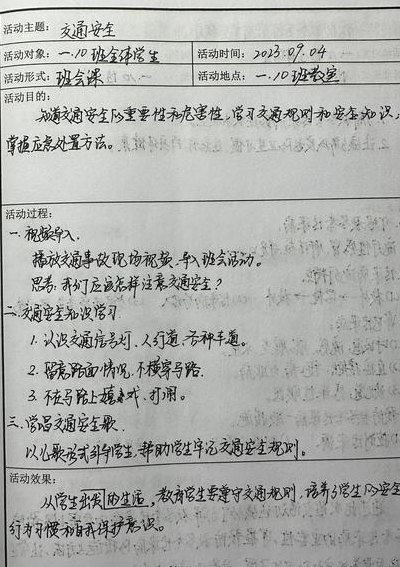 活动主题：交通安全
活动对象：一.10班全体学生 活动时间：2023.09.04
活动形式：班会课 活动地点：一.10班教室
活动目的：
知道交通安全的重要性和危害性，学习交通规则和安全知识，
掌握应急处置方法。
活动过程：
一.视频导入
播放交通事故现场视频，导入班会活动。
思考：我们应该怎样注意交通安全？
二.交通安全知识学习
1.认识交通信号灯、人行道、各种车道。
2.留意路面情况，不横穿马路.
3.不在马路上嬉戏、打闹。
三.学唱交通安全歌
以儿歌形式引导学生，帮助学生牢记交通安全规则。
活动效果：
从学生出发的生活，教育学生要遵守交通规则，培养了学生的安全
行为习惯和自我保护意识。